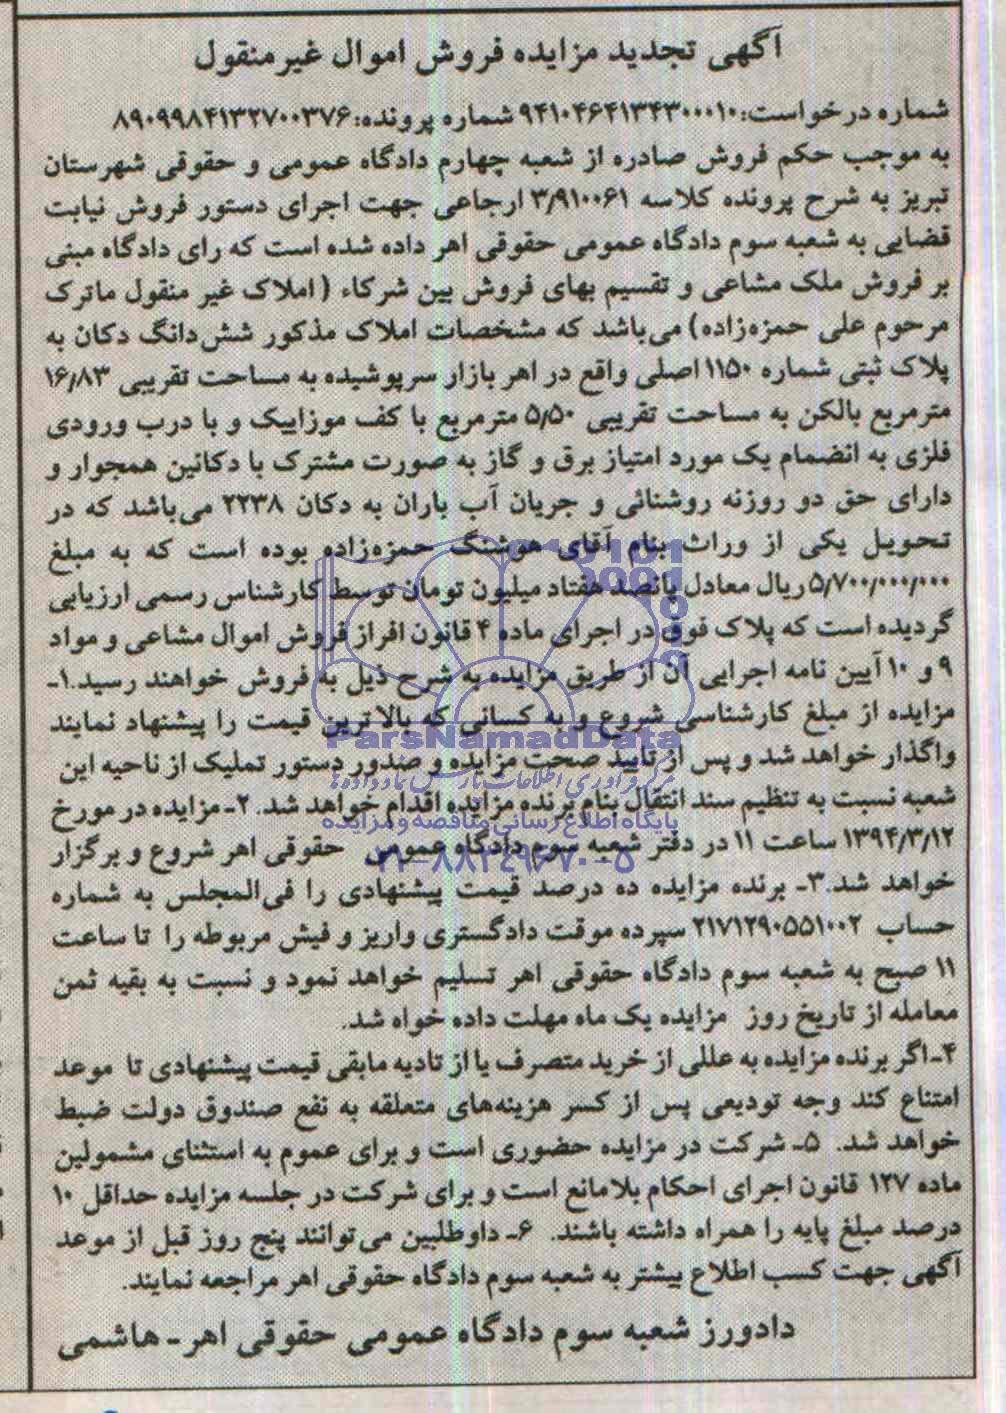 آگهی تجدید مزایده فروش اموال غیرمنقول
شماره درخواست: ۹۴۱۰۴۶۴۱۳۴۳۰۰۰۱۰ شماره پرونده: ۸۹۰۹۹۸۴۱۳۲۷۰۰۳۷۶
به موجب حکم فروش صادره از شعبه چهارم دادگاه عمومی و حقوقی شهرستان
تبریز به شرح پرونده کلاسه ۳/۹۱۰۰۶۱ ارجاعی جهت اجرای دستور فروش نیابت
قضایی به شعبه سوم دادگاه عمومی حقوقی اهر داده شده است که رای دادگاه مبنی
بر فروش ملک مشاعی و تقسیم بهای فروش بین شرکاء (املاک غیر منقول ماترک
مرحوم علی حمزه‌زاده) می‌باشد که مشخصات املاک مذکور شش‌دانگ دکان به
پلاک ثبتی شماره ۱۱۵۰ اصلی واقع در اهر بازار سرپوشیده به مساحت تقریبی ۱۶/۸۳
مترمربع بالکن به مساحت تقریبی ۵/۵۰ مترمربع با کف موزاییک و با درب ورودی
فلزی به انضمام یک مورد امتیاز برق و گاز به صورت مشترک با دکانین همجوار و
دارای حق دو روزنه روشنائی و جریان آب باران به دکان ۲۲۳۸ می‌باشد که در
تحویل یکی از وراث بنام آقای هوشنگ حمزه‌زاده بوده است که به مبلغ
۵/۷۰۰/۰۰۰/۰۰۰ ریال معادل پانصد هفتاد میلیون تومان توسط کارشناس رسمی ارزیابی
گردیده است که پلاک فوق در اجرای ماده ۴ قانون افراز فروش اموال مشاعی و مواد
۹ و ۱۰ آیین نامه اجرایی آن از طریق مزایده به شرح ذیل به فروش خواهند رسید.۱-
مزایده از مبلغ کارشناسی شروع و به کسانی که بالاترین قیمت را پیشنهاد نمایند
واگذار خواهد شد و پس از تایید صحت مزایده و صدور دستور تملیک از ناحیه این
شعبه نسبت به تنظیم سند انتقال بنام برنده مزایده اقدام خواهد شد. ۲- مزایده در مورخ
۱۳۹۴/۳/۱۲ ساعت ۱۱ در دفتر شعبه سوم دادگاه عمومی حقوقی اهر شروع و برگزار
خواهد شد.۳- برنده مزایده ده درصد قیمت پیشنهادی را فی‌المجلس به شماره
حساب ۲۱۷۱۲۹۰۵۵۱۰۰۲ سپرده موقت دادگستری واریز و فیش مربوطه را تا ساعت
۱۱ صبح به شعبه سوم دادگاه حقوقی اهر تسلیم خواهد نمود و نسبت به بقیه ثمن
معامله از تاریخ روز مزایده یک ماه مهلت داده خواه شد.
۴-اگر برنده مزایده به عللی از خرید متصرف یا از تادیه مابقی قیمت پیشنهادی تا موعد
امتناع کند وجه تودیعی پس از کسر هزینه‌های متعلقه به نفع صندوق دولت ضبط
خواهد شد. ۵- شرکت در مزایده حضوری است و برای عموم به استثنای مشمولین
ماده ۱۲۷ قانون اجرای احکام بلامانع است و برای شرکت در جلسه مزایده حداقل ۱۰
درصد مبلغ پایه را همراه داشته باشند. ۶- داوطلبین می‌توانند پنج روز قبل از موعد
آگهی جهت کسب اطلاع بیشتر به شعبه سوم دادگاه حقوقی اهر مراجعه نمایند.
دادورز شعبه سوم دادگاه عمومی حقوقی اهر- هاشمی
ParsNamadData
مرکز فرآوری اطلاعات پارس نماد داده‌ها
پایگاه اطلاع رسانی مناقصه و مزایده
۰۲۱-۸۸۳۴۹۶۷۰-۵